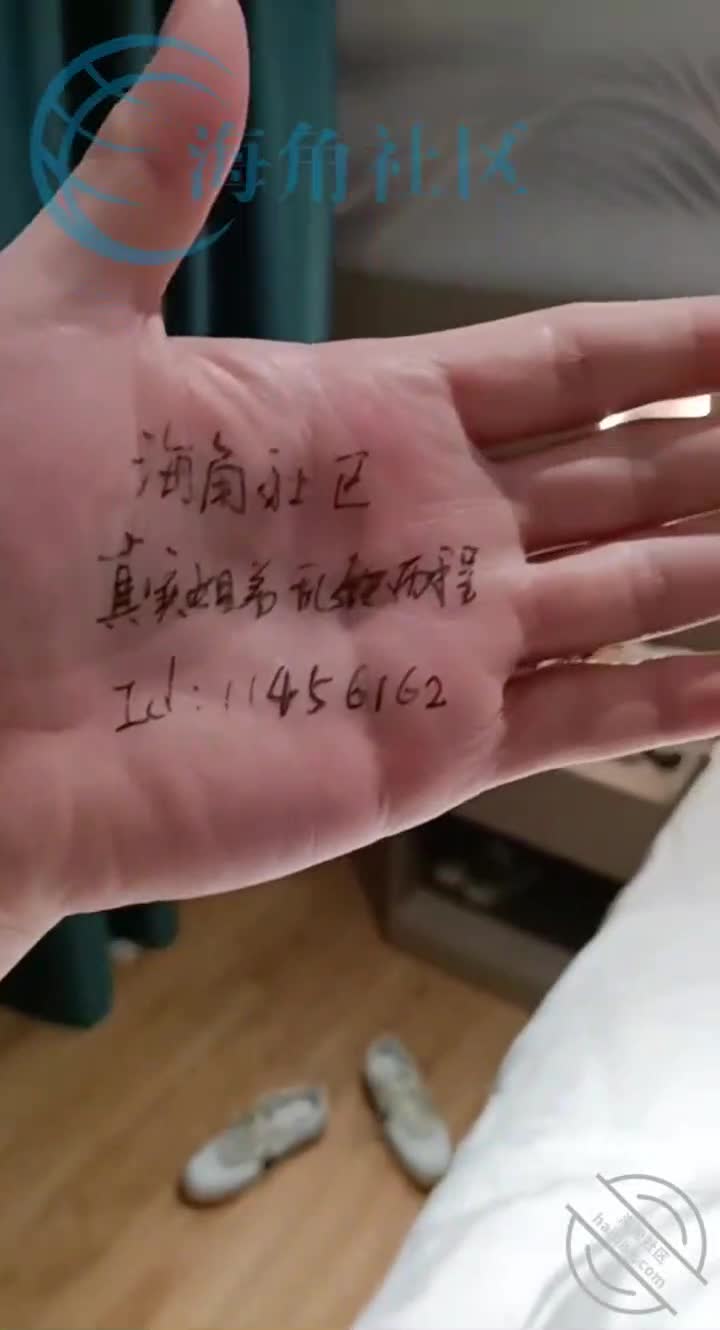 海角社区
海角社区
真实姐弟乱伦历程
Id:11456162